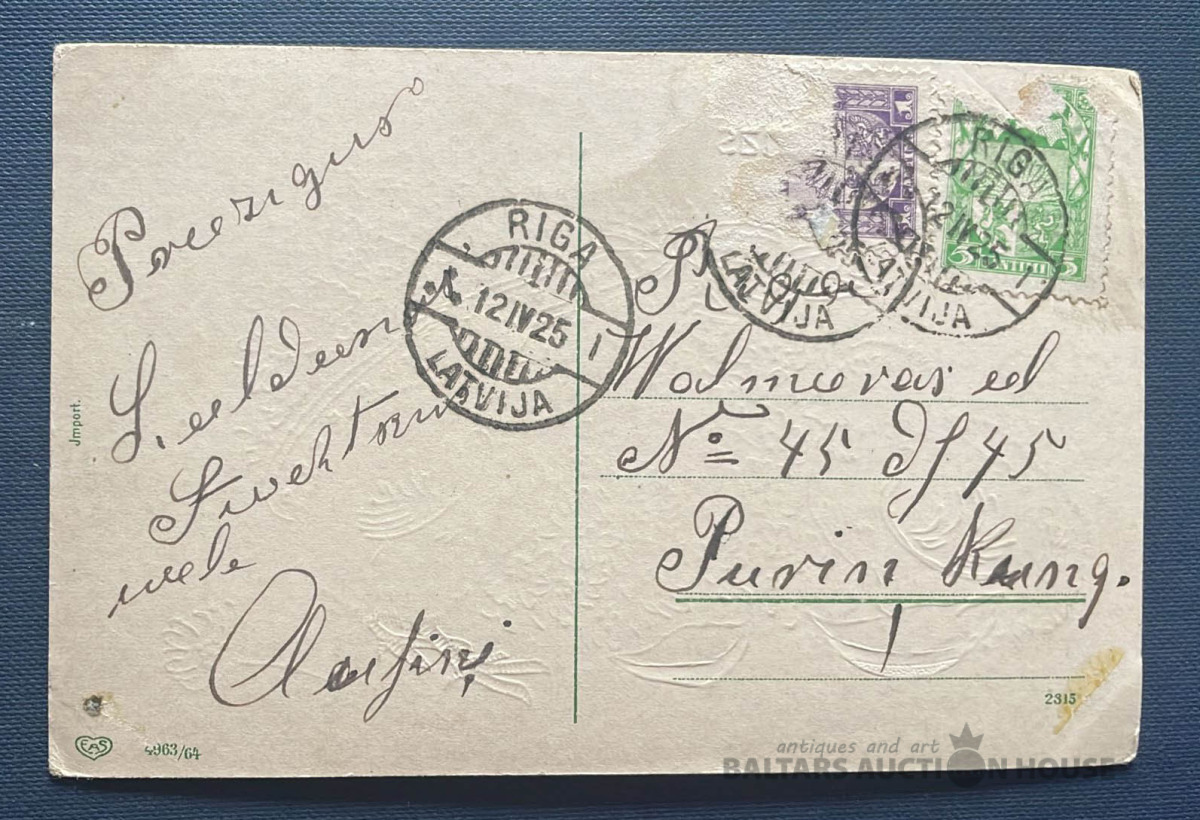 Preezigus
Leeldeen
Swehtku
wehl
RIGA
12 IV 25
1
LATVIJA
RIGA
12 IV 25
1
LATVIJA
LATVIJA
5 5
Walmeeras iel
No 45 dz 45
Purin Kung.
Import.
EAS
4963/64
2315
antiques and art
BALTARS AUCTION HOUSE